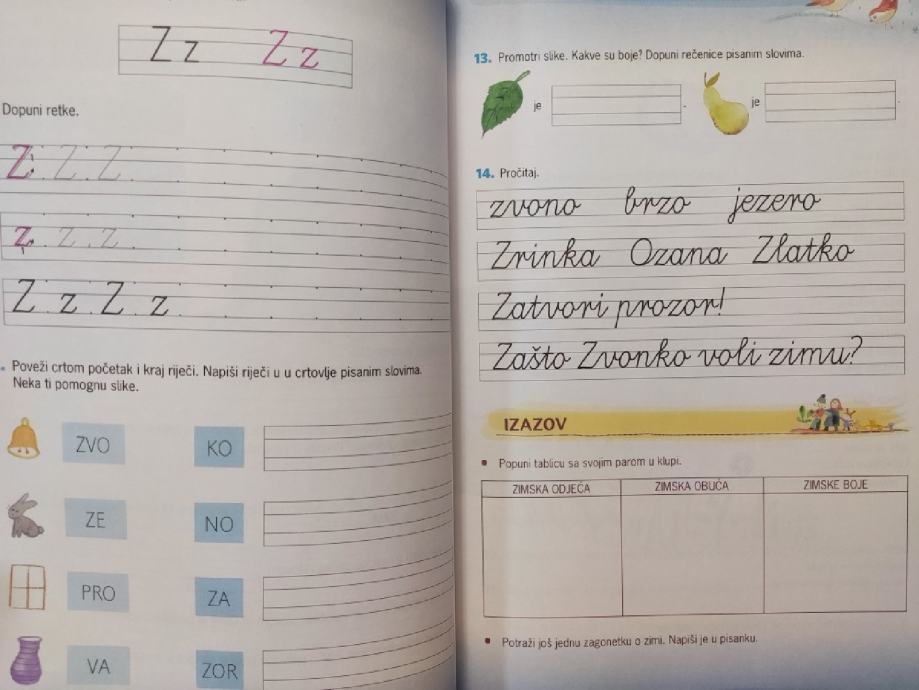 Z z Z z
Dopuni retke.
Z Z Z
z z z
Z z Z z
Poveži crtom početak i kraj riječi. Napiši riječi u u crtovlje pisanim slovima.
Neka ti pomognu slike.
ZVO KO
ZE NO
PRO ZA
VA ZOR
13. Promotri slike. Kakve su boje? Dopuni rečenice pisanim slovima.
je . je .
14. Pročitaj.
zvono brzo jezero
Zrinka Ozana Zlatko
Zatvori prozor!
Zašto Zvonko voli zimu?
IZAZOV
Popuni tablicu sa svojim parom u klupi.
ZIMSKA ODJEĆA ZIMSKA OBUĆA ZIMSKE BOJE
Potraži još jednu zagonetku o zimi. Napiši je u pisanku.